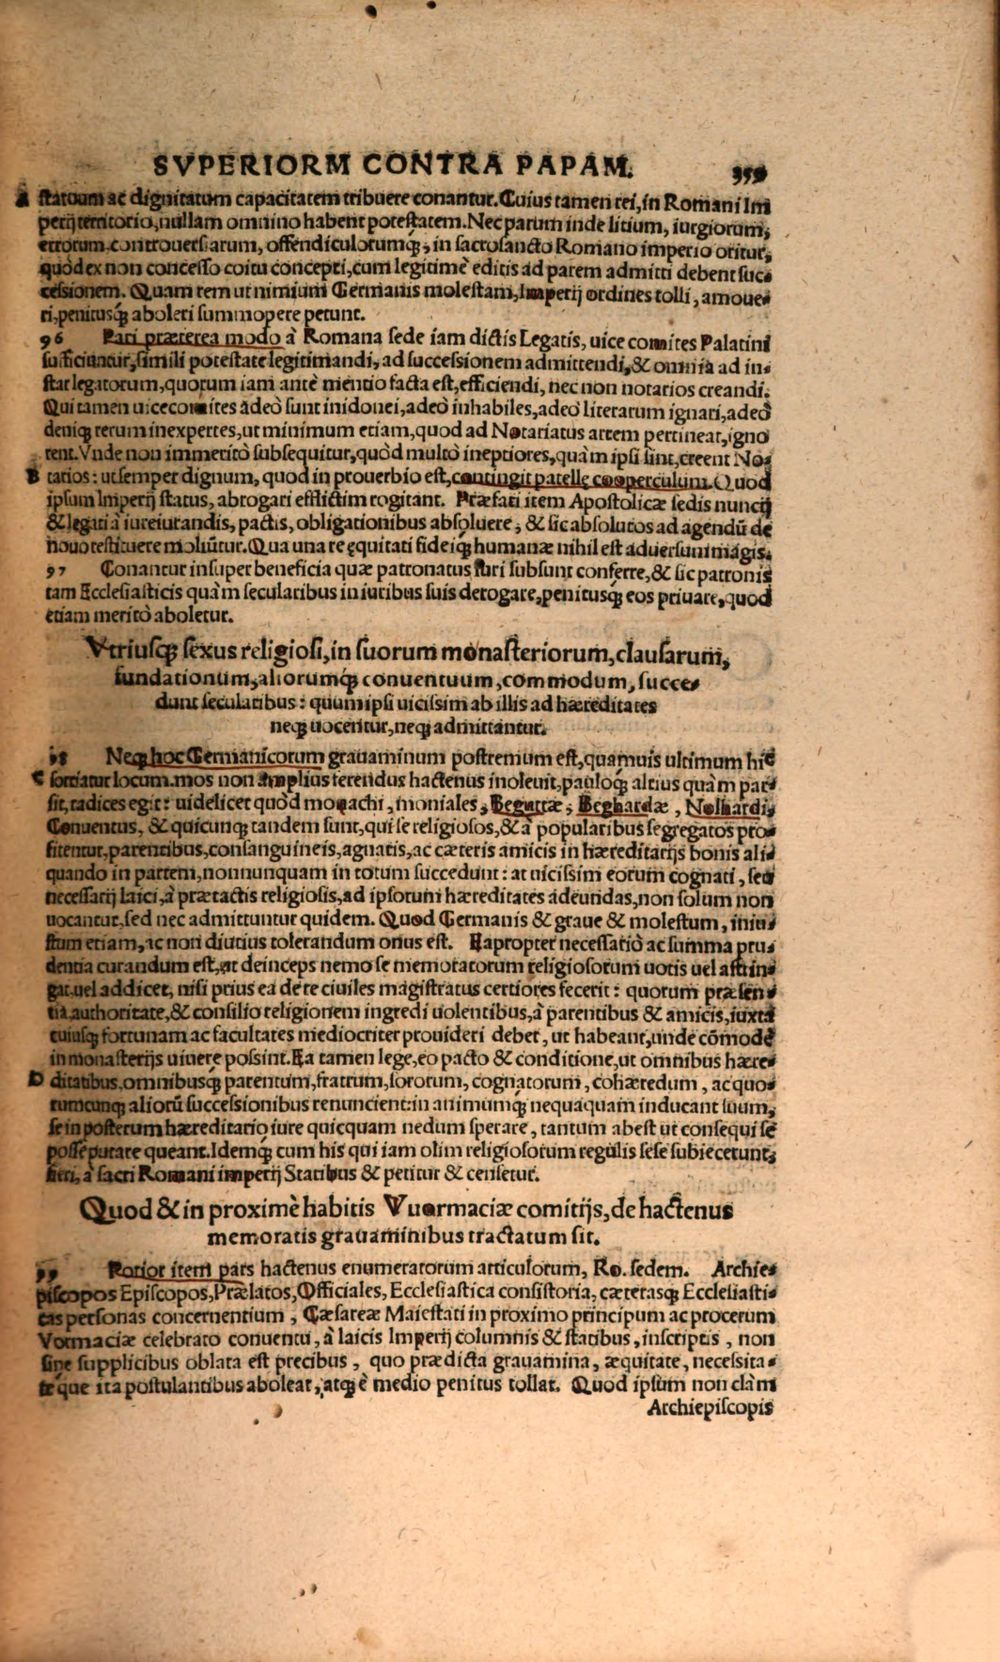 SVPERIORM CONTRA PAPAM. 359
A statuum ac dignitatum capacitatem tribuere conantur. Cuius tamen rei, in Romani Im
perij territorio, nullam omnino habent potestatem. Nec parum inde litium, iurgiorum,
errorum controuersiarum, offendiculorumq́;, in sacrosancto Romano imperio oritur,
quòd ex non concesso coitu concepti, cum legitimè editis ad parem admitti debent suc-
cessionem. Quam rem ut nimium Germanis molestam, Imperij ordines tolli, amoue-
ri, penitusq́; aboleri summopere petunt.
96 Pari præterea modo à Romana sede iam dictis Legatis, uice comites Palatini
sufficiuntur, simili potestate legitimandi, ad successionem admittendi, & omnia ad in-
star legatorum, quorum iam antè mentio facta est, efficiendi, nec non notarios creandi.
Qui tamen uicecomites adeò sunt inidonei, adeò inhabiles, adeò literarum ignari, adeò
deniq; rerum inexpertes, ut minimum etiam, quod ad Notariatus artem pertineat, igno
rent. Vnde non immeritò subsequitur, quòd multò ineptiores, quàm ipsi sint, creent No-
B tarios: ut semper dignum, quod in prouerbio est, contingit patellę cooperculum. Quod
ipsum Imperij status, abrogari efflictim rogitant. Præfati item Apostolicæ sedis nuncij
& legati à iureiurandis, pactis, obligationibus absoluere, & sic absolutos ad agendũ de
nouo restituere moliũtur. Qua una re ęquitati fideiq́; humanæ nihil est aduersum magis.
97 Conantur insuper beneficia quæ patronatus iuri subsunt conferre, & sic patronis
tam Ecclesiasticis quàm secularibus in iuribus suis derogare, penitusq́; eos priuare, quod
etiam meritò aboletur.
Vtriusq́; sexus religiosi, in suorum monasteriorum, clausarum,
fundationum, aliorumq́; conuentuum, commodum, succe-
dunt secularibus: quum ipsi uicissim ab illis ad hæreditates
neq; uocentur, neq; admittantur.
98 Neq; hoc Germanicorum grauaminum postremum est, quamuis ultimum hîc
C sortiatur locum. mos non amplius ferendus hactenus inoleuit, pauloq́; altius quàm par
sit, radices egit: uidelicet quòd monachi, moniales, Beguttæ, Beghardæ, Nolhardi,
Conuentus, & quicunq; tandem sunt, qui se religiosos, & à popularibus segregatos pro-
fitentur, parentibus, consanguineis, agnatis, ac cæteris amicis in hæreditarijs bonis ali-
quando in partem, nonnunquam in totum succedunt: at uicissim eorum cognati, seu
necessarij laici, à prætactis religiosis, ad ipsorum hæreditates adeundas, non solum non
uocantur, sed nec admittuntur quidem. Quod Germanis & graue & molestum, iniu-
stum etiam, ac non diutius tolerandum onus est. Eapropter necessariò ac summa pru-
dentia curandum est, ut deinceps nemo se memoratorum religiosorum uotis uel astrin-
gat, uel addicet, nisi prius ea de re ciuiles magistratus certiores fecerit: quorum præsen-
tia, authoritate, & consilio religionem ingredi uolentibus, à parentibus & amicis, iuxta
cuiusq; fortunam ac facultates mediocriter prouideri debet, ut habeant, unde cōmodè
in monasterijs uiuere possint. Ea tamen lege, eo pacto & conditione, ut omnibus hære-
D ditatibus, omnibusq́; parentum, fratrum, sororum, cognatorum, cohæredum, ac quo-
rumcunq; aliorũ successionibus renuncient: in animumq́; nequaquam inducant suum,
se in posterum hæreditario iure quicquam nedum sperare, tantum abest ut consequi se
posse putare queant. Idemq́; cum his qui iam olim religiosorum regulis sese subiecerunt,
fieri, à sacri Romani imperij Statibus & petitur & censetur.
Quod & in proximè habitis Vuormaciæ comitijs, de hactenus
memoratis grauaminibus tractatum sit.
99 Potior item pars hactenus enumeratorum articulorum, Ro. sedem. Archie-
piscopos Episcopos, Prælatos, Officiales, Ecclesiastica consistoria, cæterasq́; Ecclesiasti-
cas personas concernentium, Cæsareæ Maiestati in proximo principum ac procerum
Vormaciæ celebrato conuentu, à laicis Imperij columnis & statibus, inscriptis, non
sine supplicibus oblata est precibus, quo prædicta grauamina, æquitate, necessita-
te que ita postulantibus aboleat, atq́; è medio penitus tollat. Quod ipsum non clàm
Archiepiscopis